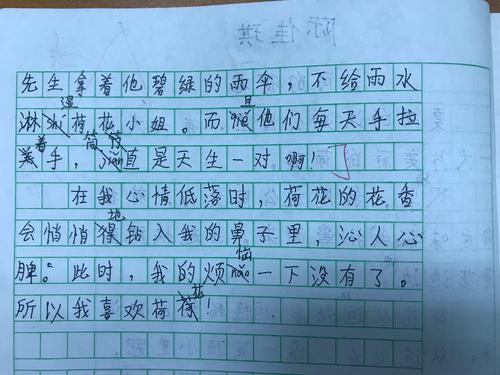 先生拿着他碧绿的雨伞，不给雨水
湿 且
淋shī荷花小姐。而qiě他们每天手拉
着 简
美手，jiǎn直是天生一对啊！
在我心情低落时，荷花的花香
地
会悄悄得钻入我的鼻子里，沁人心
恼
脾。此时，我的烦nǎo一下没有了。
花
所以我喜欢荷荷！